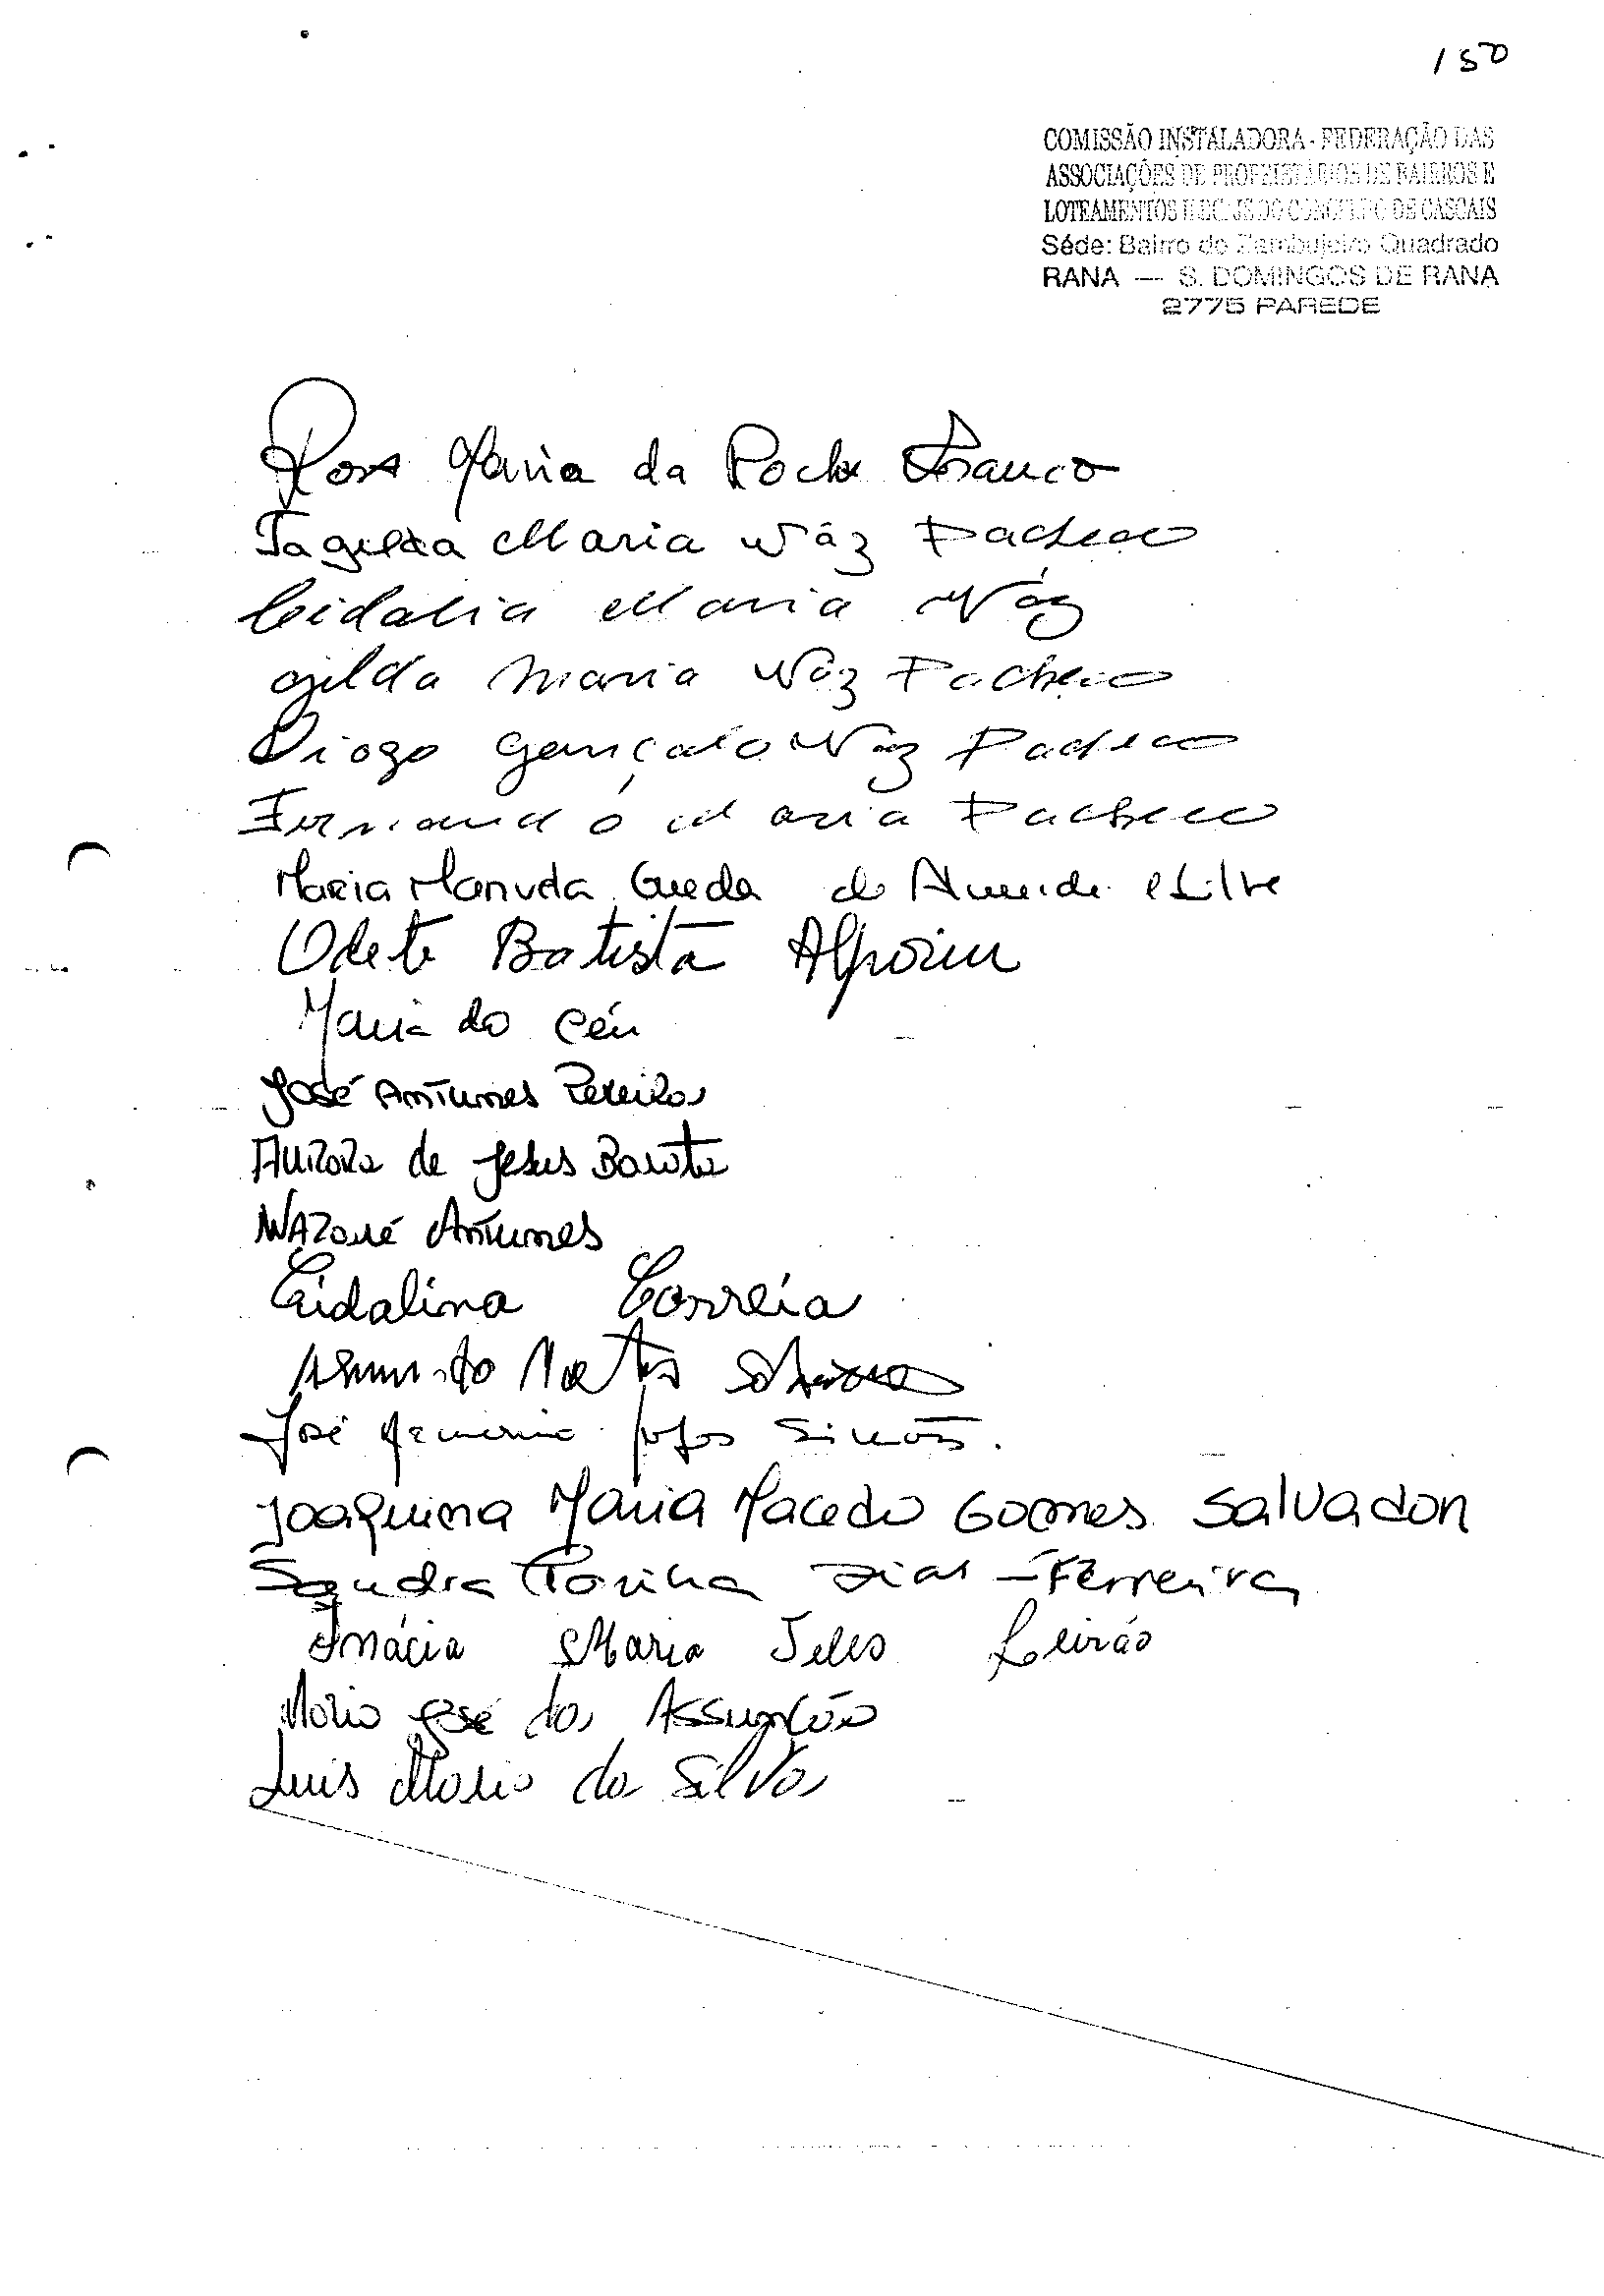 150
COMISSÃO INSTALADORA - FEDERAÇÃO DAS
ASSOCIAÇÕES DE PROPRIETÁRIOS DE BAIRROS E
LOTEAMENTOS ILEGAIS DO CONCELHO DE CASCAIS
Séde: Bairro do Zambujeiro Quadrado
RANA — S. DOMINGOS DE RANA
2775 PAREDE
Rosa Maria da Rocha Franco
Maria Váz Pacheco
Cidalia Maria Váz
Gilda Maria Váz Pacheco
Diogo Gonçalo Váz Pacheco
Fernando Maria Pacheco
Maria Manuela Gueda de Almeida e Silva
Odete Batista Alpoim
Maria do Céu
José Antunes Pereira
Aurora de Jesus Barata
Nazaré Antunes
Cidalina Correia
Matos
José Simões.
Joaquina Maria Macedo Gomes Salvador
Sandra Dias Ferreira
Inácia Maria Teles Leirão
Maria José da Assunção
Luis Mario da Silva